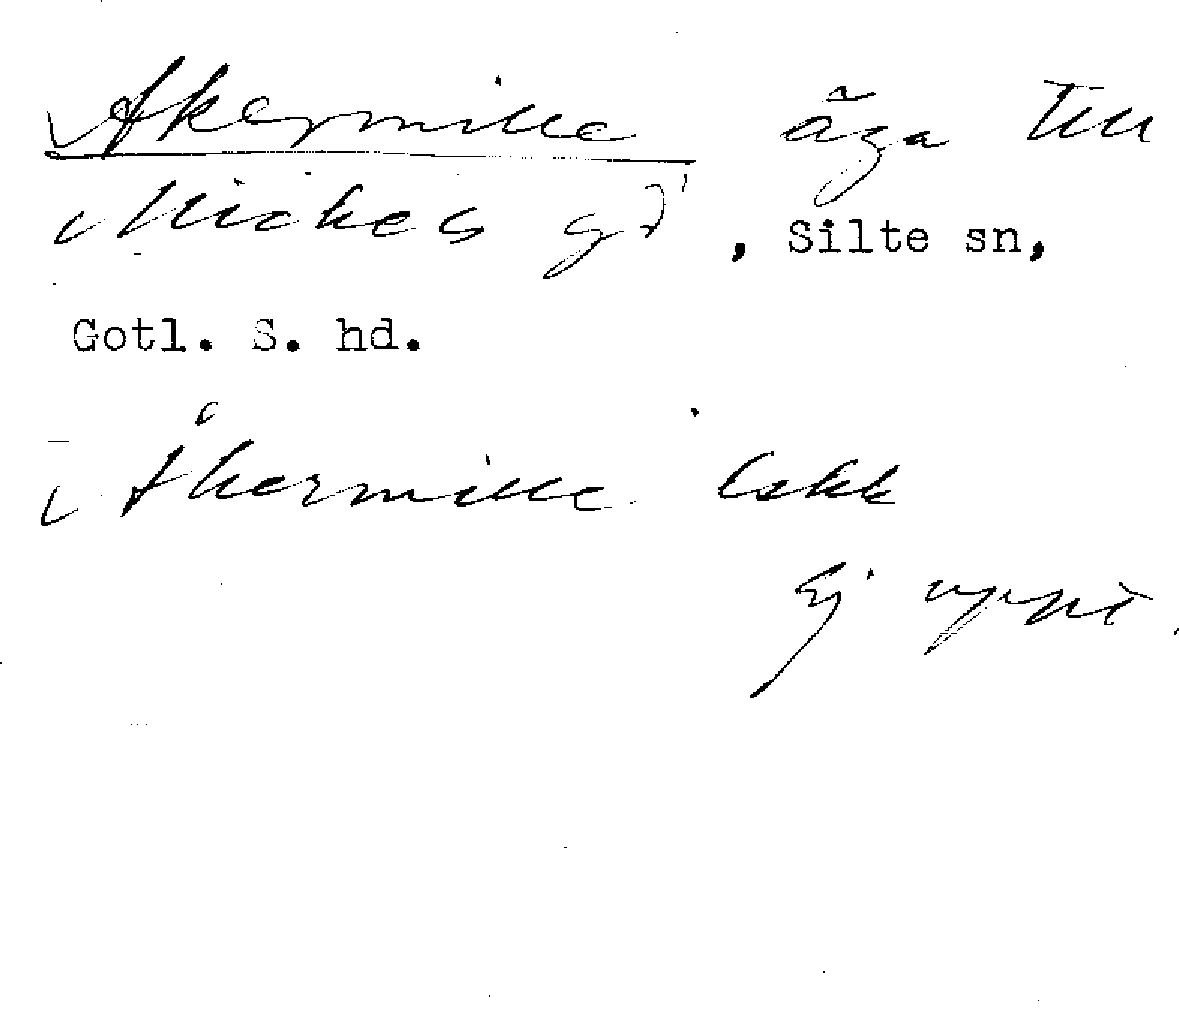 Akermille äga till
Mickels gd, Silte sn,
Gotl. S. hd.
Åkermille Lskk
Ej uppt.